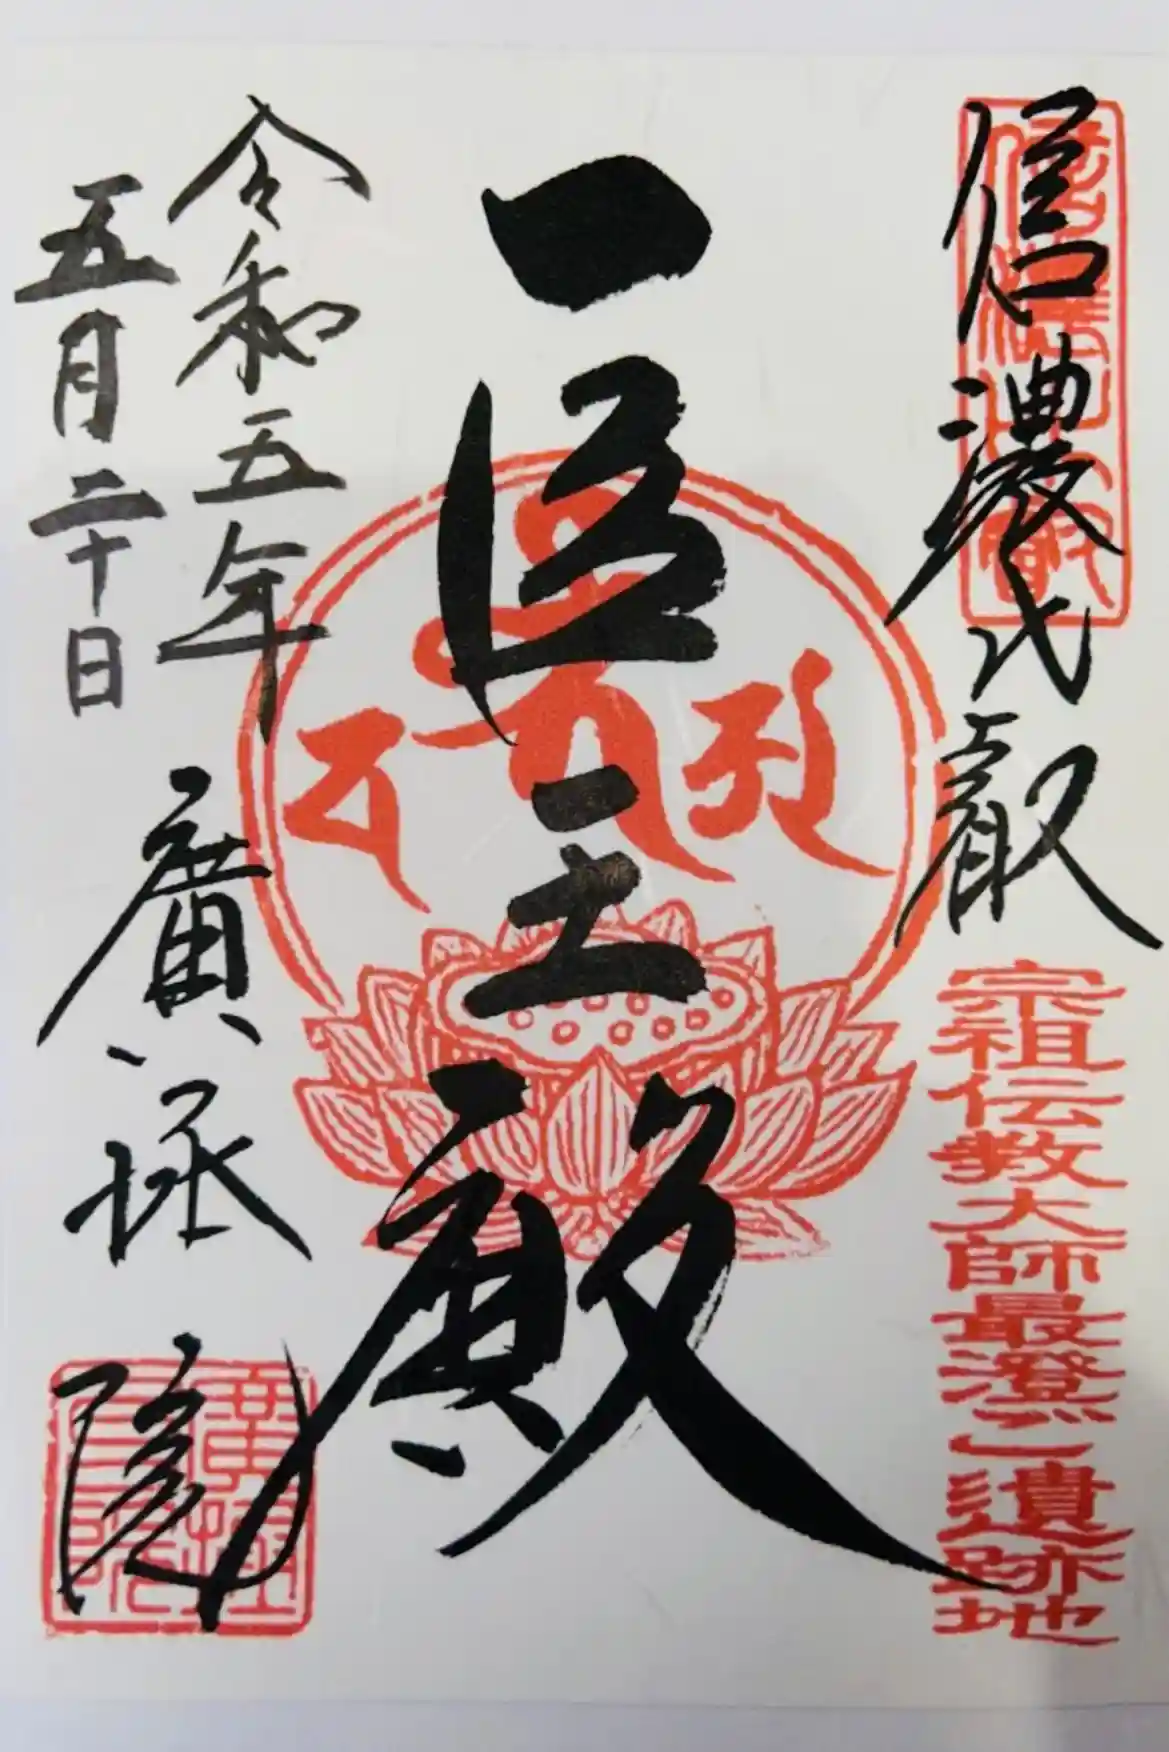 信濃比叡
宗祖伝教大師最澄ご遺跡地
一医王殿
令和五年
五月二十日
廣拯院